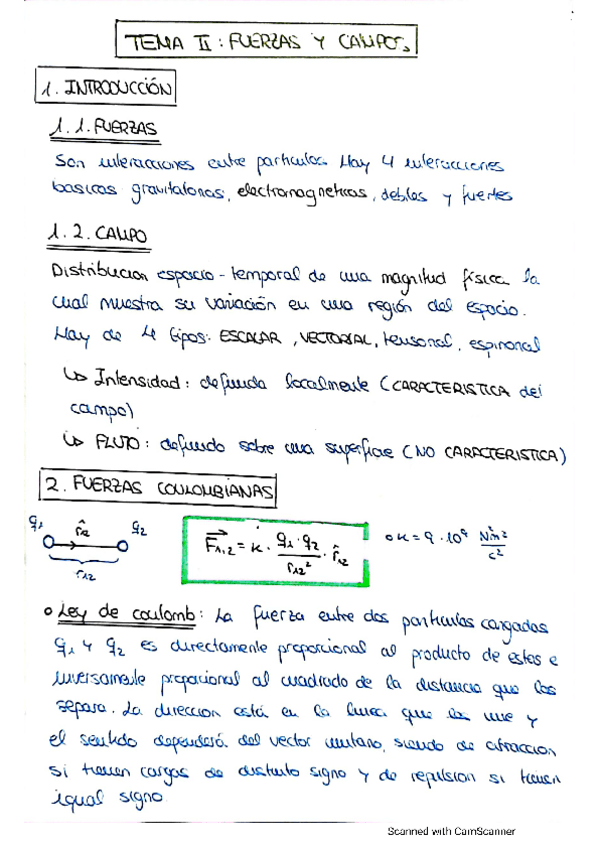 TEMA II : FUERZAS Y CAMPOS.
1. INTRODUCCIÓN
1.1. FUERZAS
Son interacciones entre particulas Hay 4 interacciones
basicas gravitatorias, electromagneticas, debiles y fuertes
1.2. CAMPO
Distribucion espacio-temporal de una magnitud física la
cual muestra su variación en una región del espacio.
Hay de 4 tipos: ESCALAR, VECTORIAL, tensorial, espinorial
↳ Intensidad: definida localmente (CARACTERISTICA del
campo)
↳ FLUJO: definido sobre una superficie (NO CARACTERISTICA)
2. FUERZAS COULOMBIANAS
q1 r̂12 q2
r12
F⃗1,2 = k · q1·q2 / r12² · r̂12
o k = 9 · 10⁹ N·m² / c²
o Ley de coulomb: La fuerza entre dos particulas cargadas
q1 y q2 es directamente proporcional al producto de estas e
inversamente propocional al cuadrado de la distancia que las
separa. La direccion está en la linea que las une y
el sentido dependerá del vector unitario, siendo de atraccion
si tienen cargas de distinto signo y de repulsion si tienen
igual signo
Scanned with CamScanner